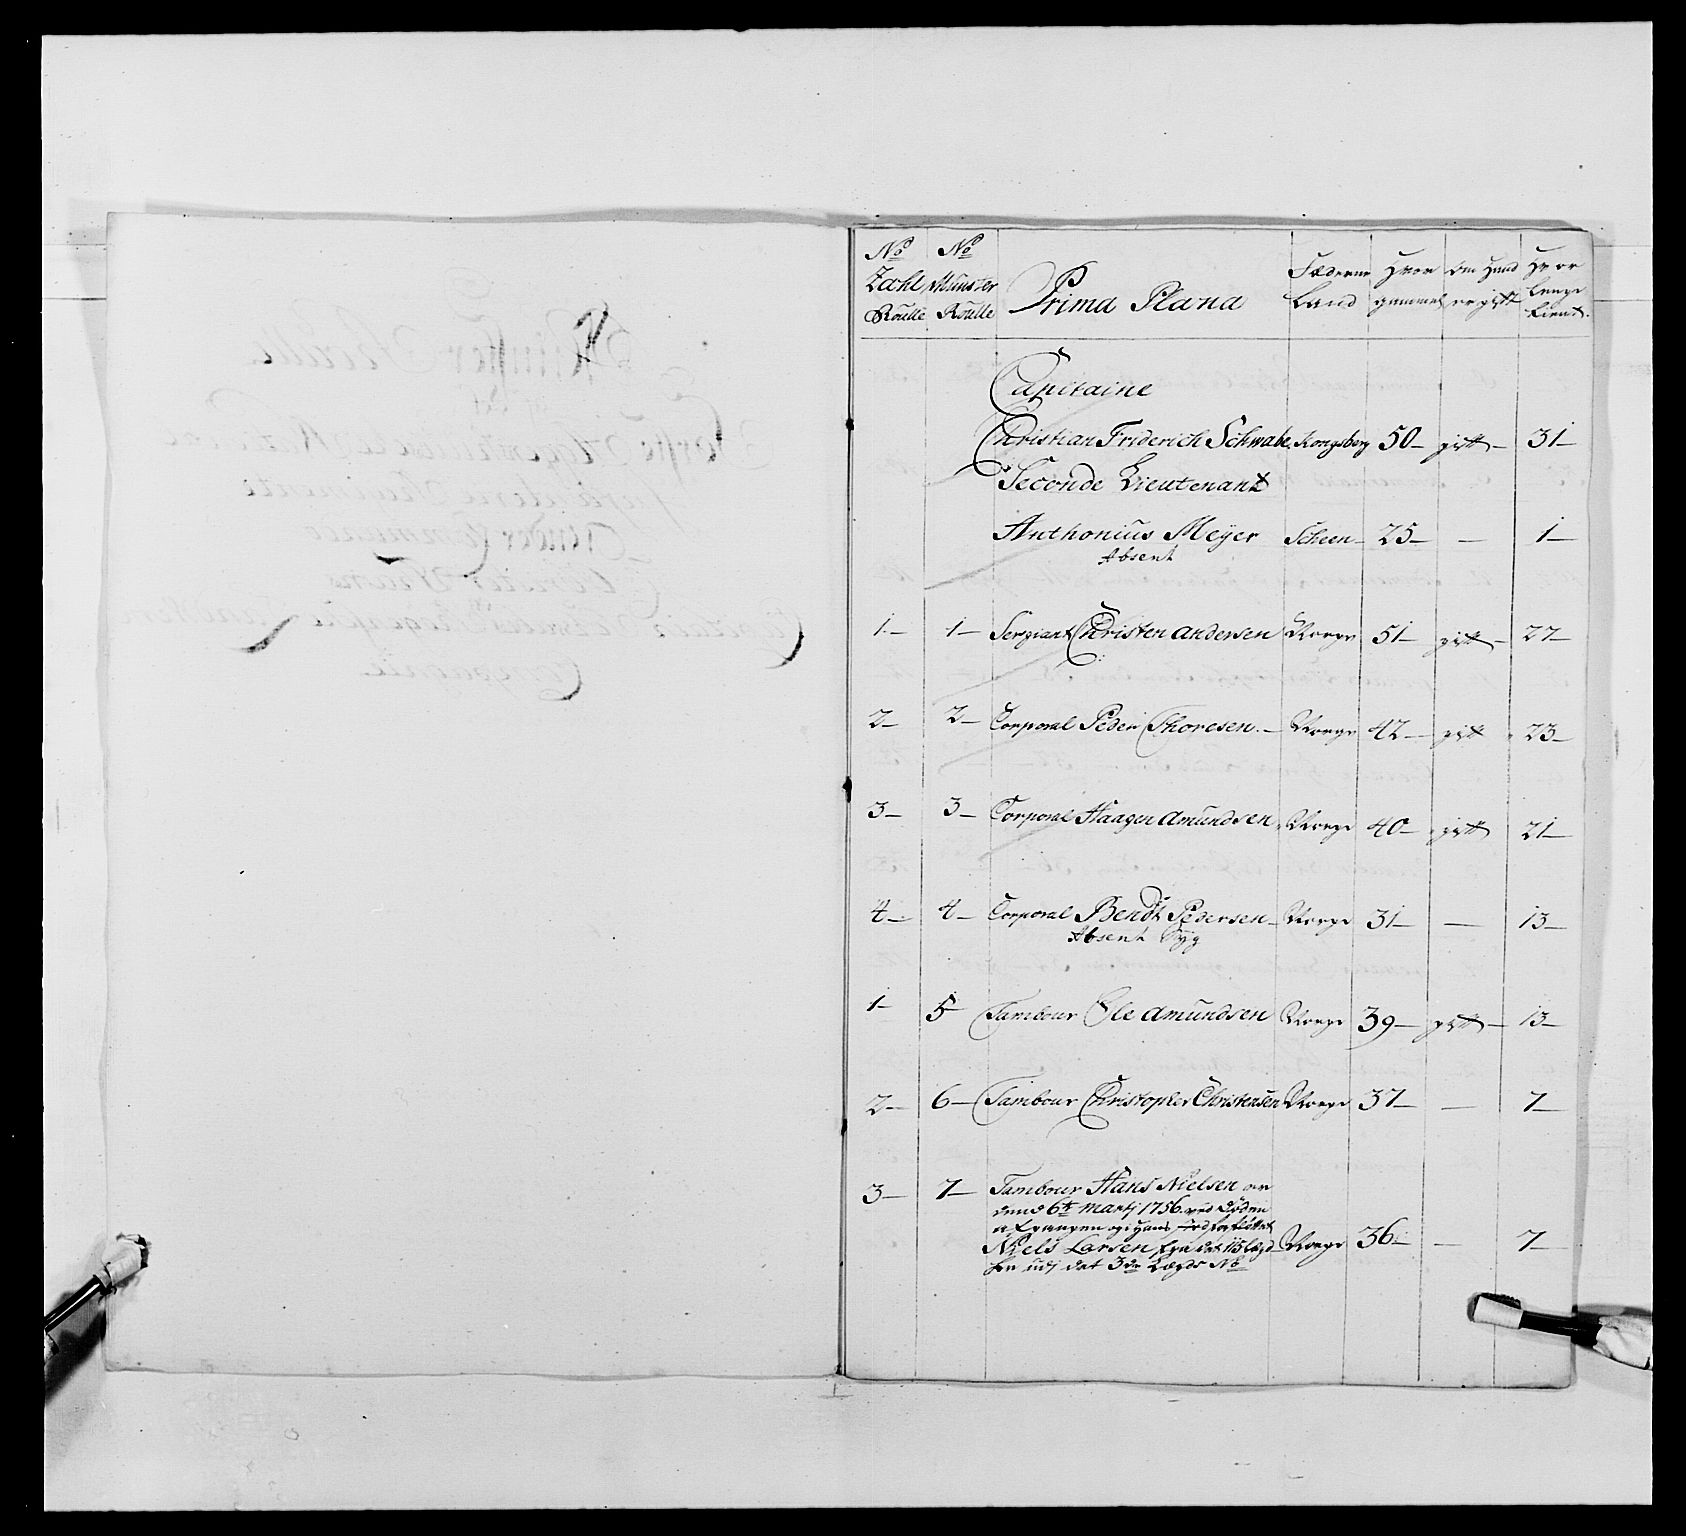 No Zahl Roulle | No Munster Roulle | Prima Plana | Fæderne Land | Hvor gammel | Om Hand er gift | Hvor lenge tient
Capitaine
Christian Friderich Schwabe Kongsberg 50 – gift – 31 –
Seconde Lieutenant
Anthonius Meyer Scheen – 25 – – 1 –
Absent
1 – 1 – Sergiant Christen Andersen Norge 51 gift – 27 –
2 – 2 – Corporal Peder Thoresen. – Norge 42 – gift 23 –
3 – 3 – Corporal Haagen Amundsen Norge 40 – gift 21 –
4 – 4 – Corporal Bendt Pedersen – Norge 31 – – 13 –
Absent Syg
1 – 5 Tambour Ole Amundsen Norge 39 – gift – 13 –
2 – 6 – Tambour Christopher Christensen Norge 37 – – 7 –
3 – 7 – Tambour Hans Nielsen er
dend 6te Martj 1756 ved Døden
afgangen og i Hans
Niels Larsen Norge 36 – 7 –
udj det 3de Lægds No